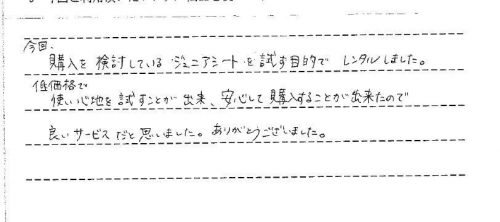 今回、
購入を検討しているジュニアシートを試す目的でレンタルしました。
低価格で
使い心地を試すことが出来、安心して購入することが出来たので
良いサービスだと思いました。ありがとうございました。